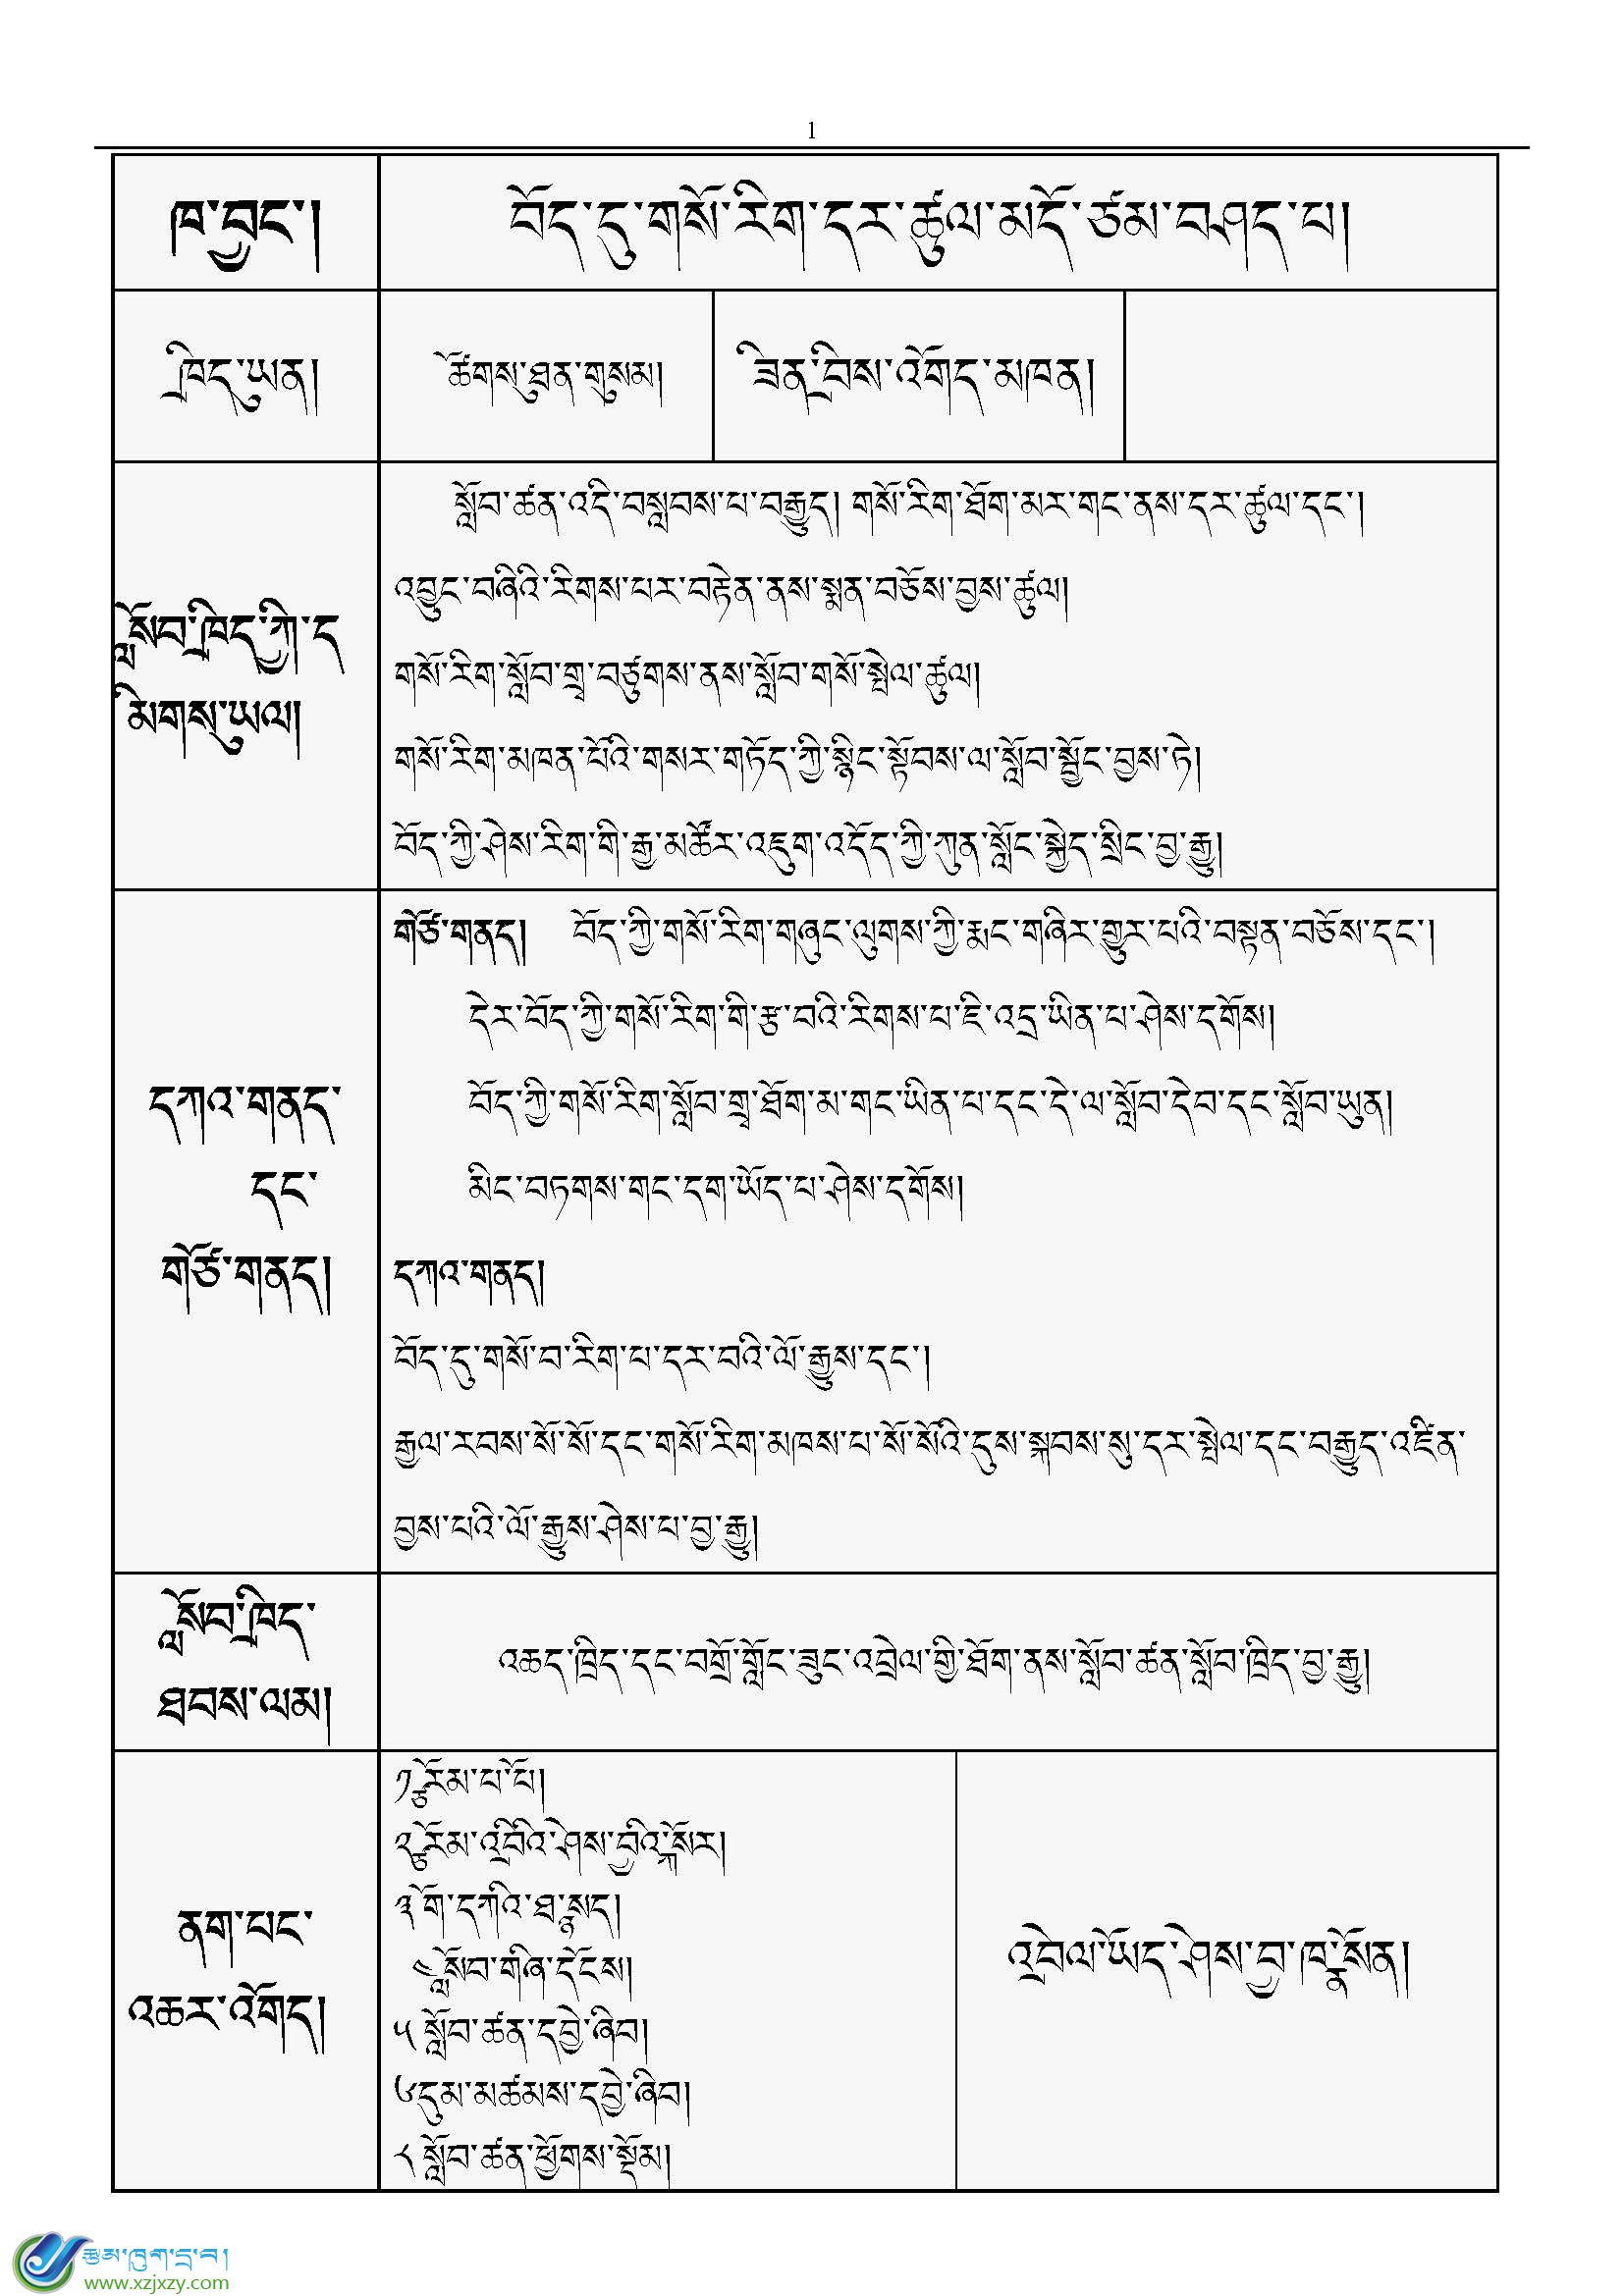 1
ཁ་བྱང་།
བོད་དུ་གསོ་རིག་དར་ཚུལ་མདོ་ཙམ་བཤད་པ།
ཁྲིད་ཡུན།
ཚོགས་ཐུན་གསུམ།
ཟིན་བྲིས་འགོད་མཁན།
སློབ་ཁྲིད་ཀྱི་ད
མིགས་ཡུལ།
སློབ་ཚན་འདི་བསླབས་པ་བརྒྱུད། གསོ་རིག་ཐོག་མར་གང་ནས་དར་ཚུལ་དང་།
འབྱུང་བཞིའི་རིགས་པར་བརྟེན་ནས་སྨན་བཅོས་བྱས་ཚུལ།
གསོ་རིག་སློབ་གྲྭ་བཙུགས་ནས་སློབ་གསོ་སྤེལ་ཚུལ།
གསོ་རིག་མཁན་པོའི་གསར་གཏོད་ཀྱི་སྙིང་སྟོབས་ལ་སློབ་སྦྱོང་བྱས་ཏེ།
བོད་ཀྱི་ཤེས་རིག་གི་རྒྱ་མཚོར་འཇུག་འདོད་ཀྱི་ཀུན་སློང་སྐྱེད་སྲིང་བྱ་རྒྱུ།
དཀའ་གནད་
དང་
གཙོ་གནད།
གཙོ་གནད། བོད་ཀྱི་གསོ་རིག་གཞུང་ལུགས་ཀྱི་རྨང་གཞིར་གྱུར་པའི་བསྟན་བཅོས་དང་།
དེར་བོད་ཀྱི་གསོ་རིག་གི་རྩ་བའི་རིགས་པ་ཇི་འདྲ་ཡིན་པ་ཤེས་དགོས།
བོད་ཀྱི་གསོ་རིག་སློབ་གྲྭ་ཐོག་མ་གང་ཡིན་པ་དང་དེ་ལ་སློབ་དེབ་དང་སློབ་ཡུན།
མིང་བཏགས་གང་དག་ཡོད་པ་ཤེས་དགོས།
དཀའ་གནད།
བོད་དུ་གསོ་བ་རིག་པ་དར་བའི་ལོ་རྒྱུས་དང་།
རྒྱལ་རབས་སོ་སོ་དང་གསོ་རིག་མཁས་པ་སོ་སོའི་དུས་སྐབས་སུ་དར་སྤེལ་དང་བརྒྱུད་འཛིན་
བྱས་པའི་ལོ་རྒྱུས་ཤེས་པ་བྱ་རྒྱུ།
སློབ་ཁྲིད་
ཐབས་ལམ།
འཆད་ཁྲིད་དང་བགྲོ་གླེང་ཟུང་འབྲེལ་གྱི་ཐོག་ནས་སློབ་ཚན་སློབ་ཁྲིད་བྱ་རྒྱུ།
ནག་པང་
འཆར་འགོད།
༡ རྩོམ་པ་པོ།
༢ རྩོམ་འབྲིའི་ཤེས་བྱའི་སྐོར།
༣ གོ་དཀའི་ཐ་སྙད།
༤ སློབ་གཞི་དངོས།
༥ སློབ་ཚན་དབྱེ་ཞིབ།
༦དུམ་མཚམས་དབྱེ་ཞིབ།
༨ སློབ་ཚན་ཕྱོགས་སྡོམ།
འབྲེལ་ཡོད་ཤེས་བྱ་ཁ་སྣོན།
རྩམ་ཁུག་དྲ་བ།
www.xzjxzy.com